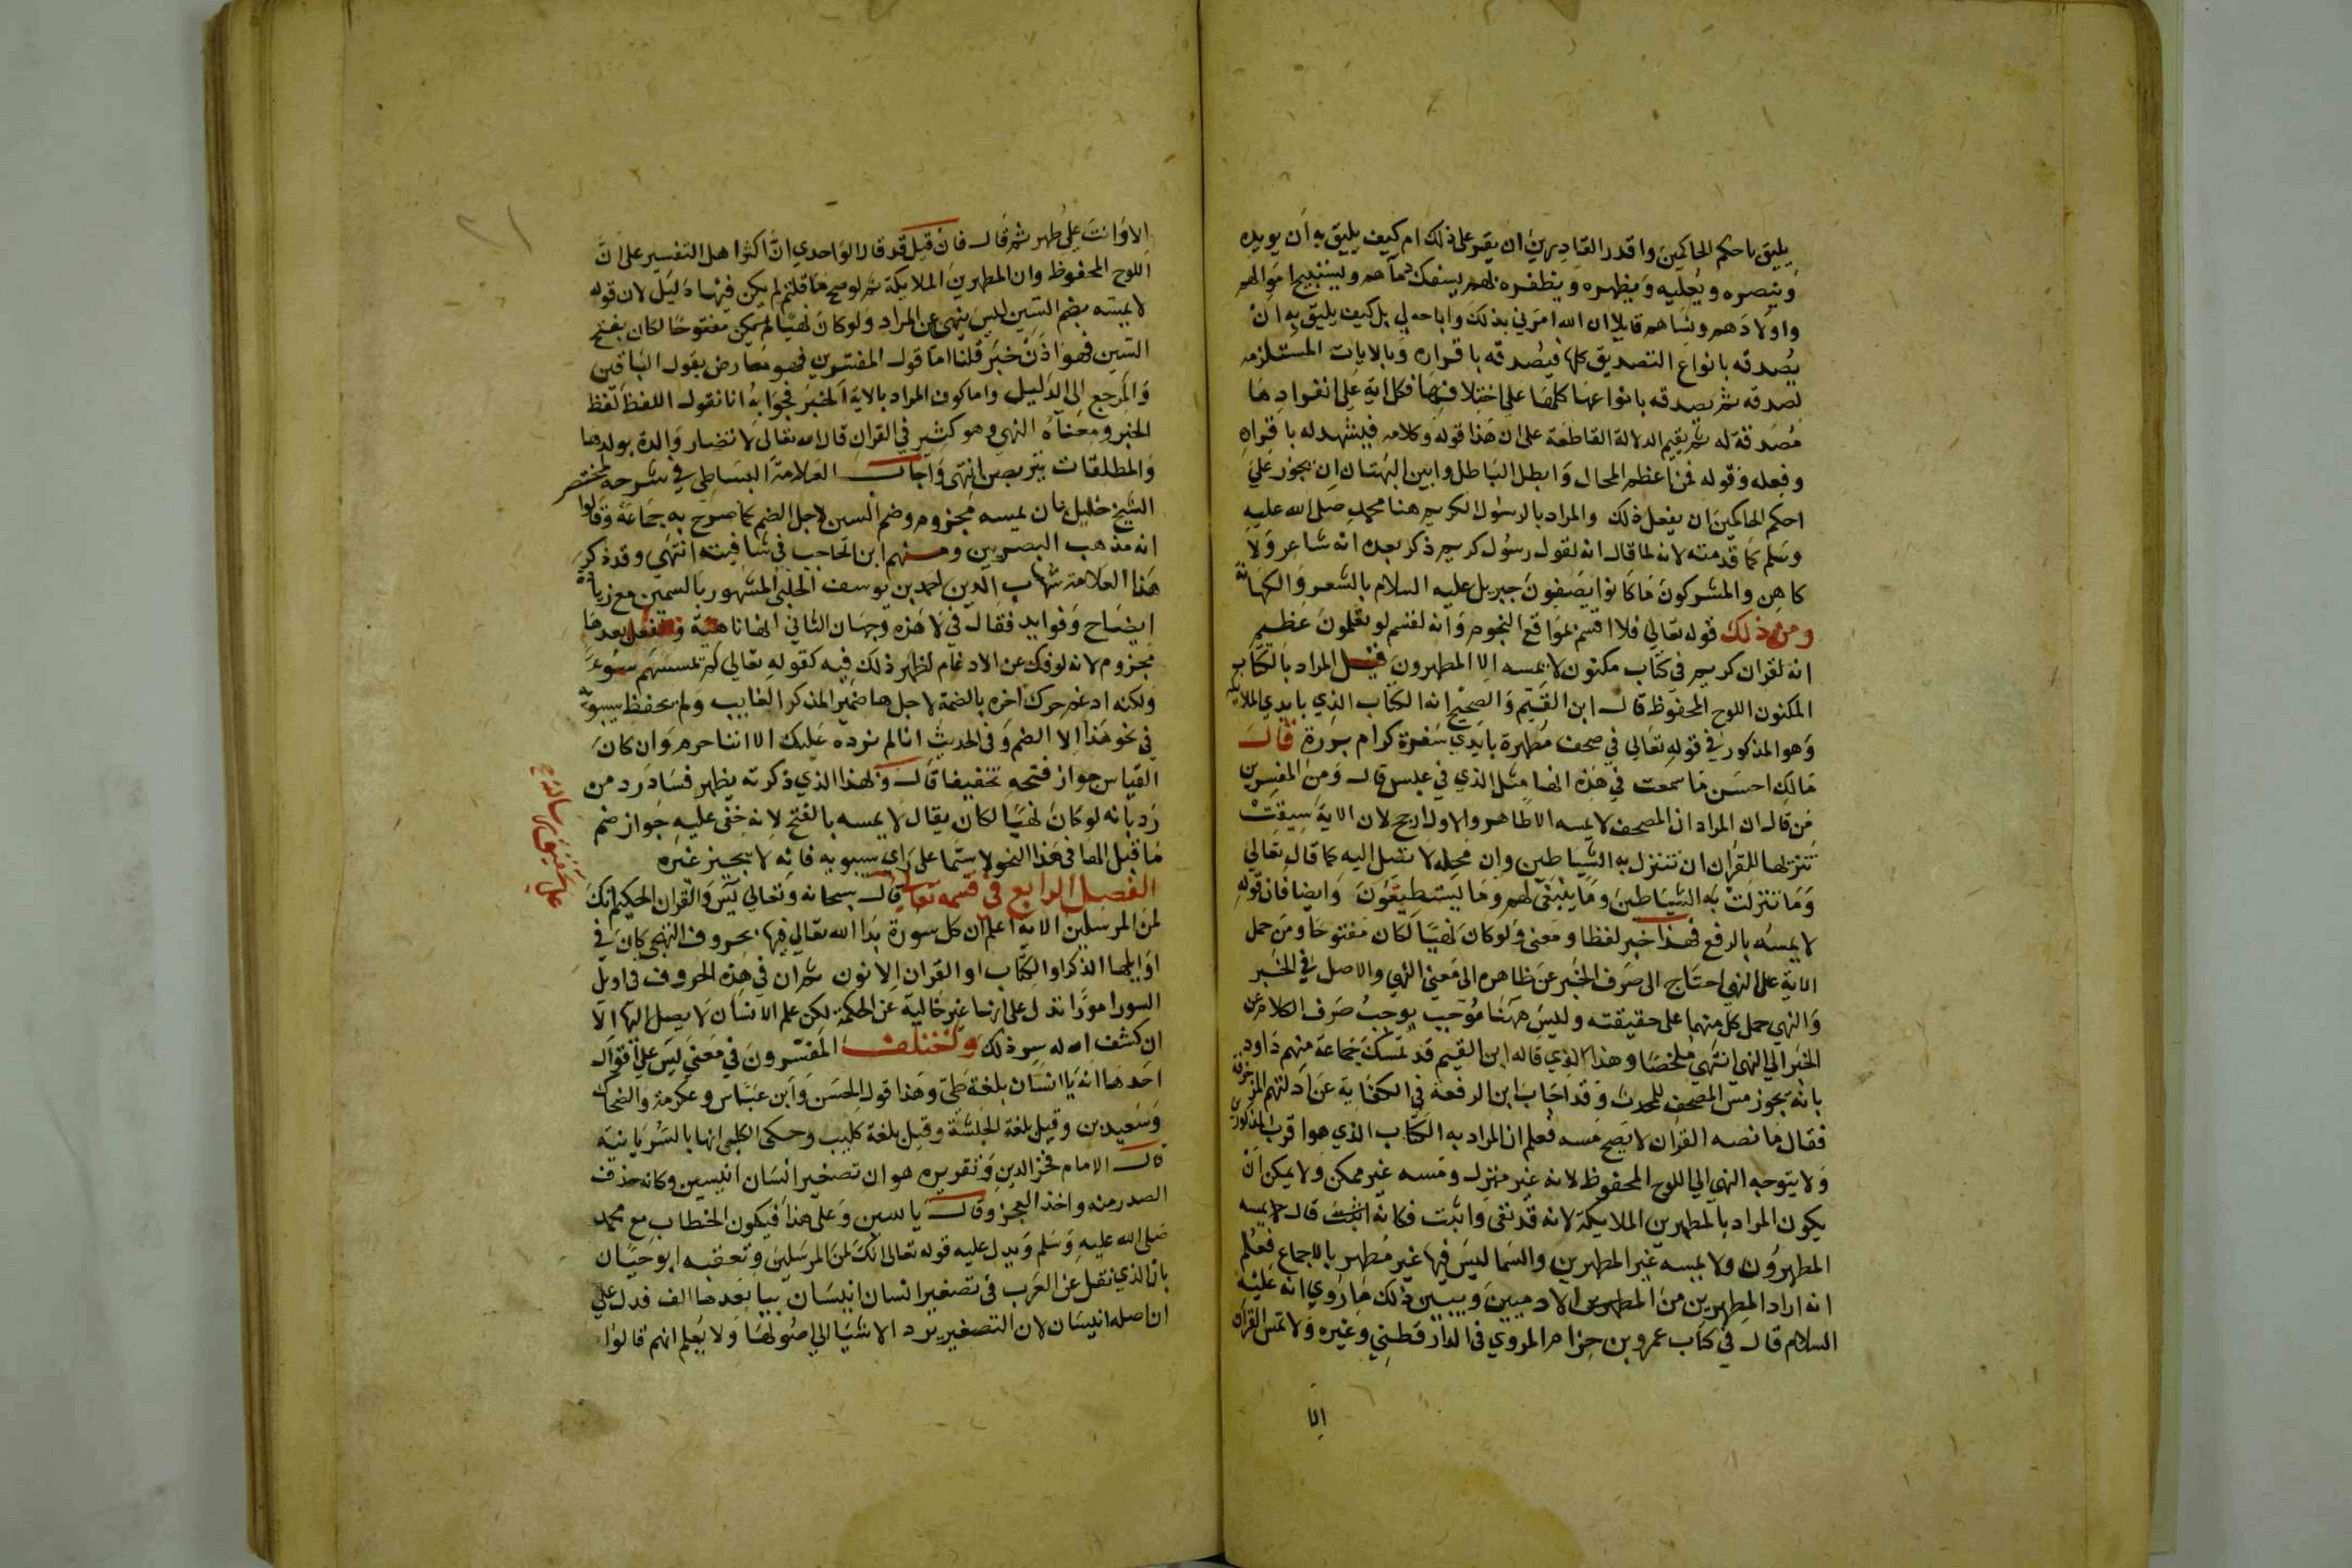 يليق باحكم الحاكمين واقدر القادرين ان يقر على ذلك ام كيف يليق به ان يويده
وينصره ويعليه ويظهره ويظفره بهم يسفك دمآهم ويستبيح اموالهم
واولادهم ونساهم قايلا ان الله امرني بذلك واباحه لي بل كيف يليق به ان
يصدقه بانواع التصديق كلها فيصدقه باقراره وبالايات المستلزمه
لصدقه ثم يصدقه بانواعها كلها على اختلافها فكل اية على انفرادها
مصدقة له ثم يقيم الدلالة القاطعة على ان هذا قوله وكلامه فيشهد له باقراره
وفعله وقوله فمن اعظم المحال وابطل الباطل وابين البهتان ان يجوز على
احكم الحاكمين ان يفعل ذلك والمراد بالرسول الكريم هنا محمد صلى الله عليه
وسلم كما قدمته لانه لما قال انه لقول رسول كريم ذكر بعده انه شاعر ولا
كاهن والمشركون ما كانوا يصفون جبريل عليه السلام بالشعر والكهانة
ومن ذلك قوله تعالى فلا اقسم بمواقع النجوم وانه لقسم لو تعلمون عظيم
انه لقران كريم في كتاب مكنون لا يمسه الا المطهرون قيل المراد بالكتاب
المكنون اللوح المحفوظ قال ابن القيم والصحيح انه الكتاب الذي بايدي الملايكة
وهو المذكور في قوله تعالى في صحف مطهرة بايدي سفرة كرام بررة قال
مالك احسن ما سمعت في هذه انها مثل الذي في عبس قال ومن المفسرين
من قال ان المراد ان المصحف لا يمسه الا طاهر والاول ارجح لان الاية سيقت
تنزيها للقران ان تتنزل به الشياطين وان محله لا تصل اليه كما قال تعالى
وما تنزلت به الشياطين وما ينبغي لهم وما يستطيعون وايضا فان قوله
لا يمسه بالرفع فهذا خبر لفظا ومعنى ولو كان نهيا لكان مفتوحا ومن حمل
الاية على النهي احتاج الى صرف الخبر عن ظاهره الى معنى النهي والاصل في الخبر
والنهي حمل كل منهما على حقيقته وليس ههنا موجب يوجب صرف الكلام عن
الخبر الي النهي انتهى ملخصا وهذا الذي قاله ابن القيم قد تمسك به جماعة منهم داود
بانه يجوز مس المصحف للمحدث وقد اجاب ابن الرفعة في الكفاية عن ادلتهم المزخرفة
فقال ما نصه القران لا يصح مسه فعلم ان المراد به الكتاب الذي هو اقرب المذكورين
ولا يتوجه النهي الي اللوح المحفوظ لانه غير منزل ومسه غير ممكن ولا يمكن ان
يكون المراد بالمطهرين الملايكة لانه قد نفى واثبت فكانه قال لا يمسه
المطهرون ولا يمسه غير المطهرين والسما ليس فيها غير مطهر بالاجماع فعلم
انه اراد المطهرين من الادميين ويبين ذلك ما روي انه عليه
السلام قال في كتاب عمرو بن حزام المروي في الدارقطني وغيره ولا تمس القران
الا
الا وانت على طهر ثم قال فان قيل قد قال الواحدي ان اكثر اهل التفسير على ان
اللوح المحفوظ وان المطهرين الملايكة ثم لو صح ما قلتم لم يكن فيها دليل لان قوله
لا يمسه بضم السين ليس بنهي عن المراد ولو كان نهيا لم يكن مفتوحا لكان بفتح
السين فهو اذن خبر قلنا اما قول المفسرين فهو معارض بقول الباقين
والمرجع الى الدليل واما كون المراد بالاية الخبر فجوابه انا نقول اللفظ لفظ
الخبر ومعناه النهي وهو كثير في القران قال الله تعالى لا تضار والدة بولدها
والمطلقات يتربصن انتهى واجاب العلامة البساطي في شرحه لمختصر
الشيخ خليل بان يمسه مجزوم وضم السين لاجل الضم كما صرح به جماعة وقالوا
انه مذهب البصريين ومنهم ابن الحاجب في شافيته انتهى وقد ذكر
هذا العلامة شهاب الدين احمد بن يوسف الحلبي المشهور بالسمين مع زيادة
ايضاح وفوايد فقال في لا هذه وجهان الثاني انها ناهية والفعل بعدها
مجزوم لانه لو فك عن الادغام لظهر ذلك فيه كقوله تعالى لم يمسسهم سوء
ولكنه ادغم حرك اخره بالضمة لاجل ها ضمير المذكر الغايب ولم يحفظ سيبويه
في نحو هذا الا الضم وفي الحديث انا لم نرده عليك الا اننا حرم وان كان
القياس جواز فتحه تخفيفا قال وبهذا الذي ذكرته يظهر فساد رد من
رد بانه لو كان نهيا لكان يقال لا يمسه بالفتح لانه خفي عليه جواز ضم
ما قبل الها في هذا النحو لا سيما على راي سيبويه فانه لا يجيز غيره
الفصل الرابع في قسمه تعالى قال سبحانه وتعالى يس والقران الحكيم انك
لمن المرسلين الاية اعلم ان كل سورة بدا الله تعالى فيها بحروف التهجي كان في
اوايلها الذكر او الكتاب او القران الا نون ثم ان في هذه الحروف في اوايل
السور امورا تدل على انها غير خالية عن الحكمة لكن علم الانسان لا يصل اليها الا
ان كشف الله له سر ذلك واختلف المفسرون في معنى يس على اقوال
احدها انه يا انسان بلغة طي وهذا قول الحسن وابن عباس وعكرمة والضحاك
وسعيد بن وقيل بلغة الحبشة وقيل بلغة كليب وحكى الكلبي انها بالسريانية
قال الامام فخر الدين وتقريره هو ان تصغير انسان انيسين وكانه حذف
الصدر منه واخذ العجز وقال ياسين وعلى هذا فيكون الخطاب مع محمد
صلى الله عليه وسلم ويدل عليه قوله تعالى انك لمن المرسلين وتعقبه ابو حيان
بان الذي نقل عن العرب في تصغير انسان انيسان بيا بعدها الف فدل على
ان اصله انيسان لان التصغير يرد الاشيا الي اصولها ولا يعلم انهم قالوا